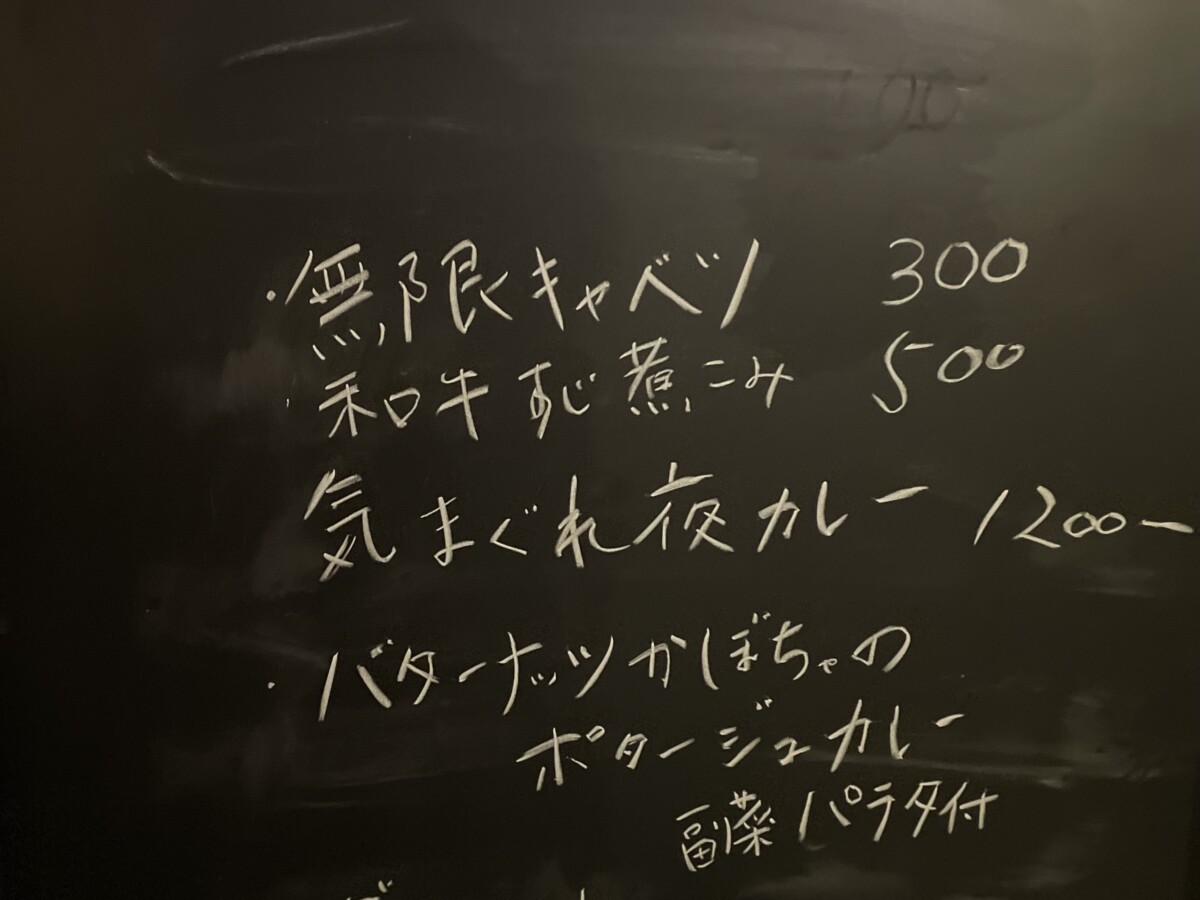 ・無限キャベツ 300
・和牛すじ煮こみ 500
気まぐれ夜カレー 1200ー
・バターナッツかぼちゃの
ポタージュカレー
副菜パラタ付